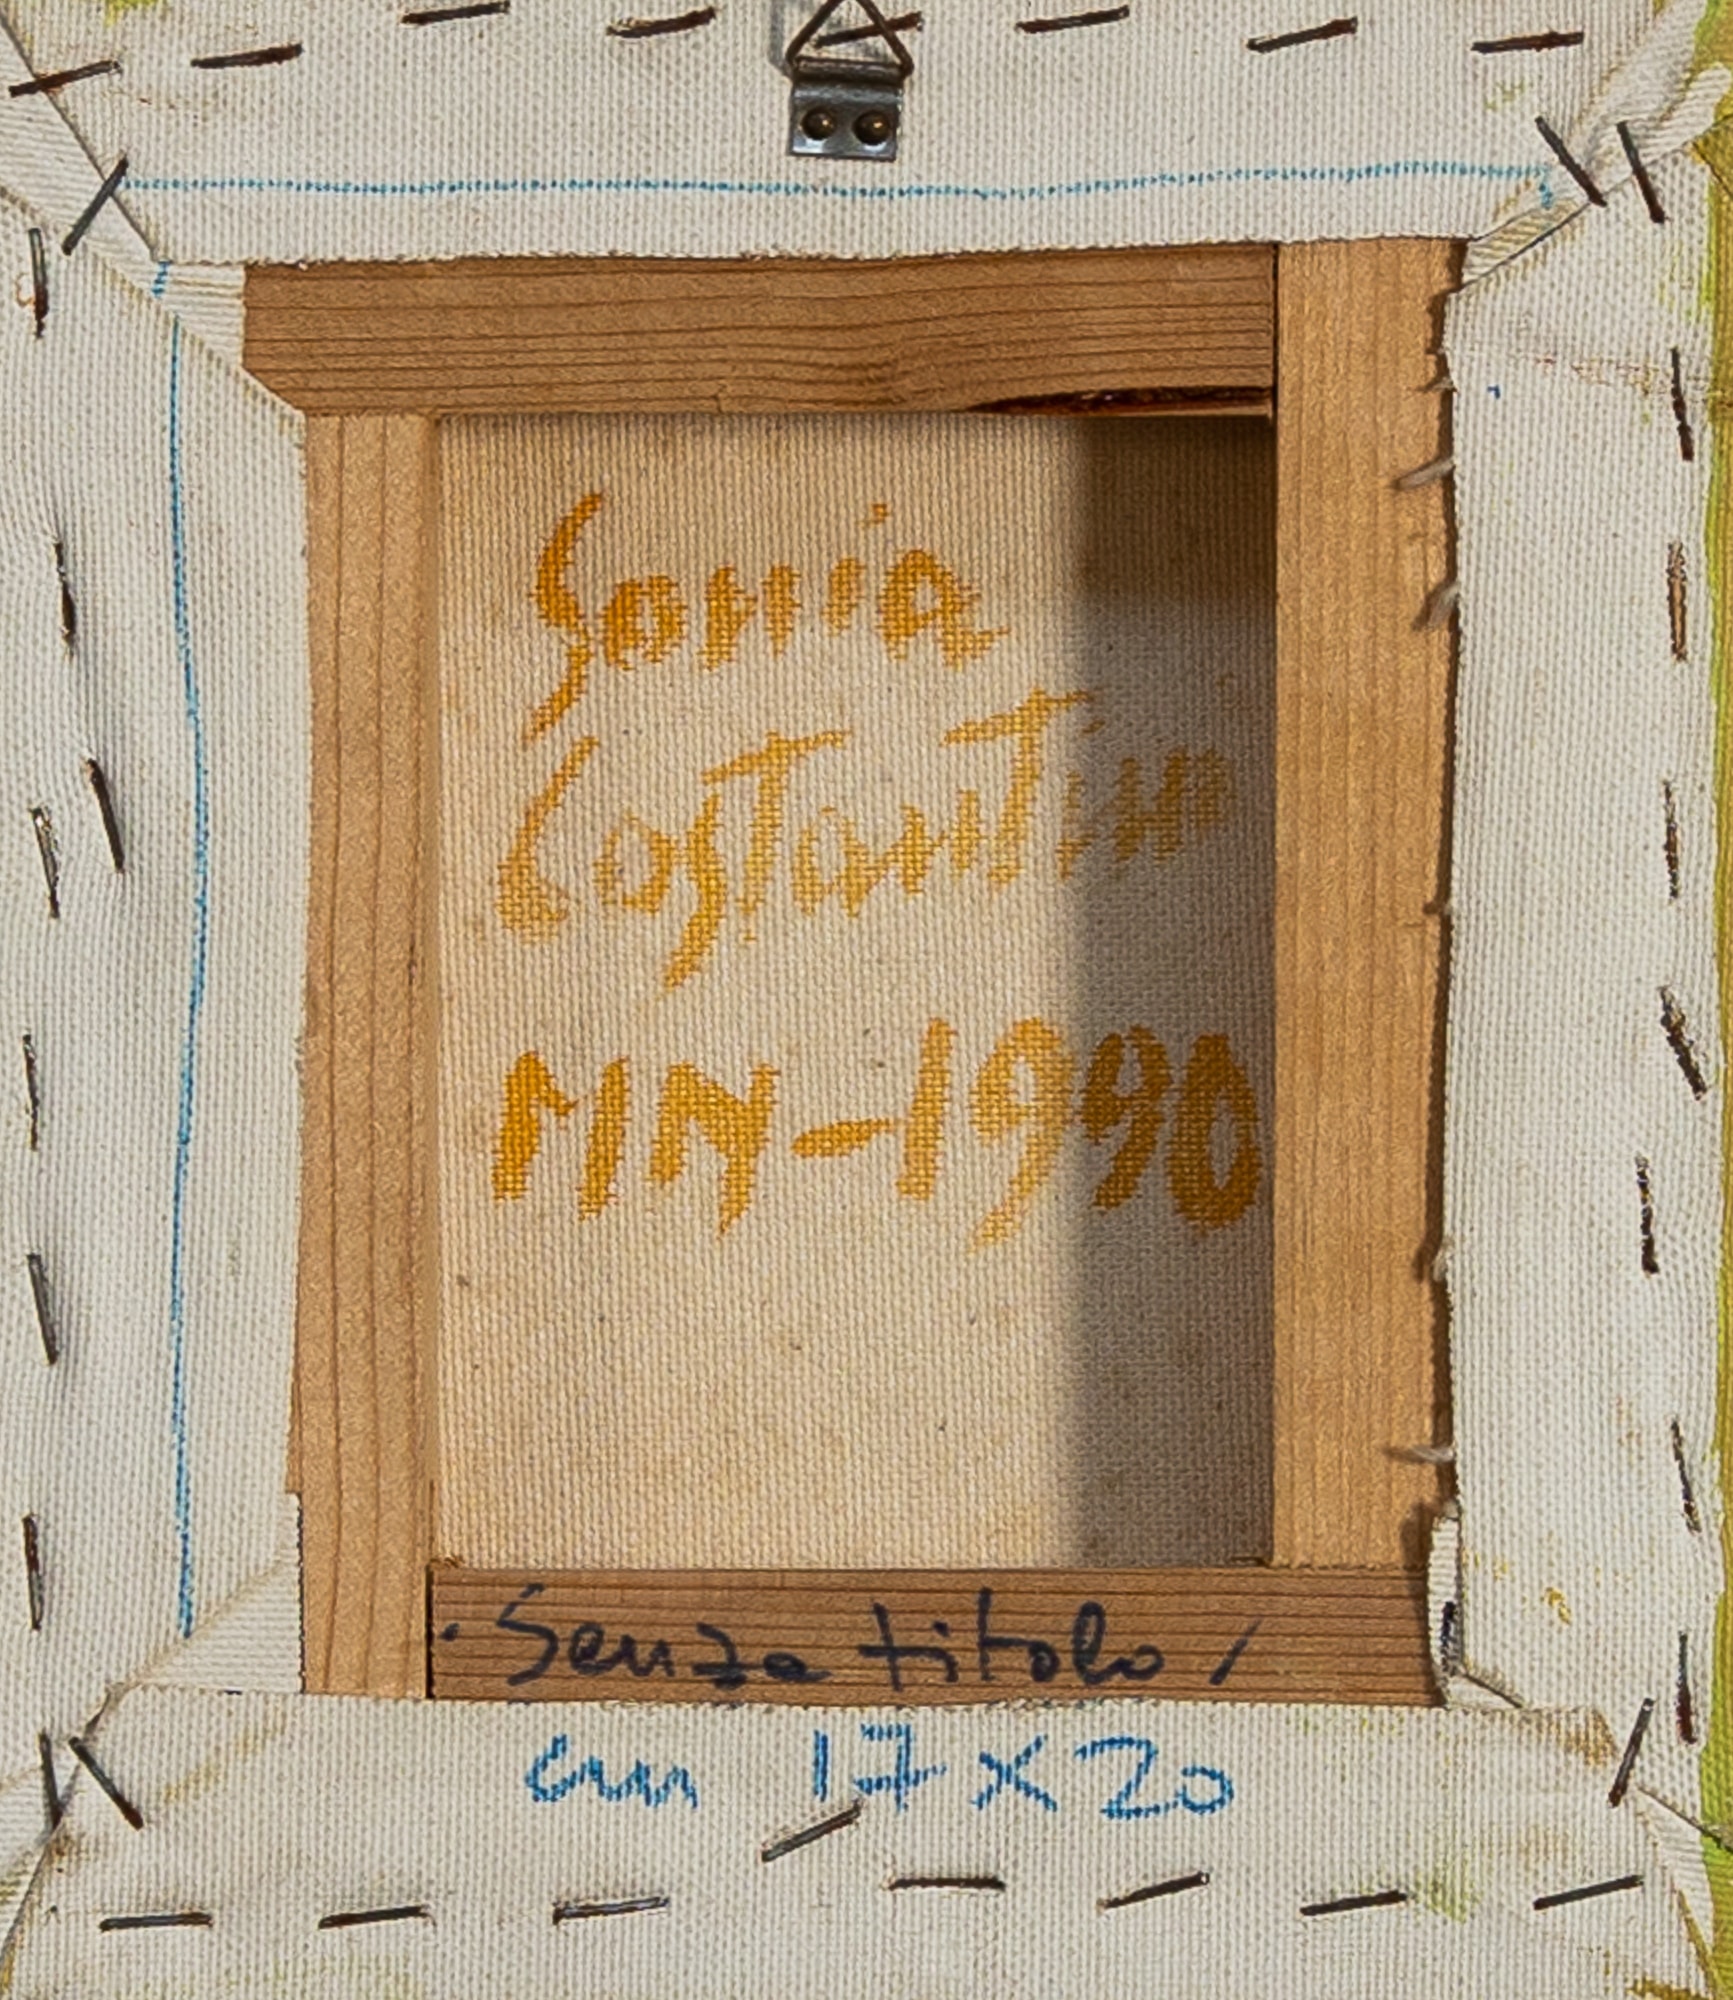 Sonia
Costantino
MN-1990
. Senza titolo /
cm 17 x 20